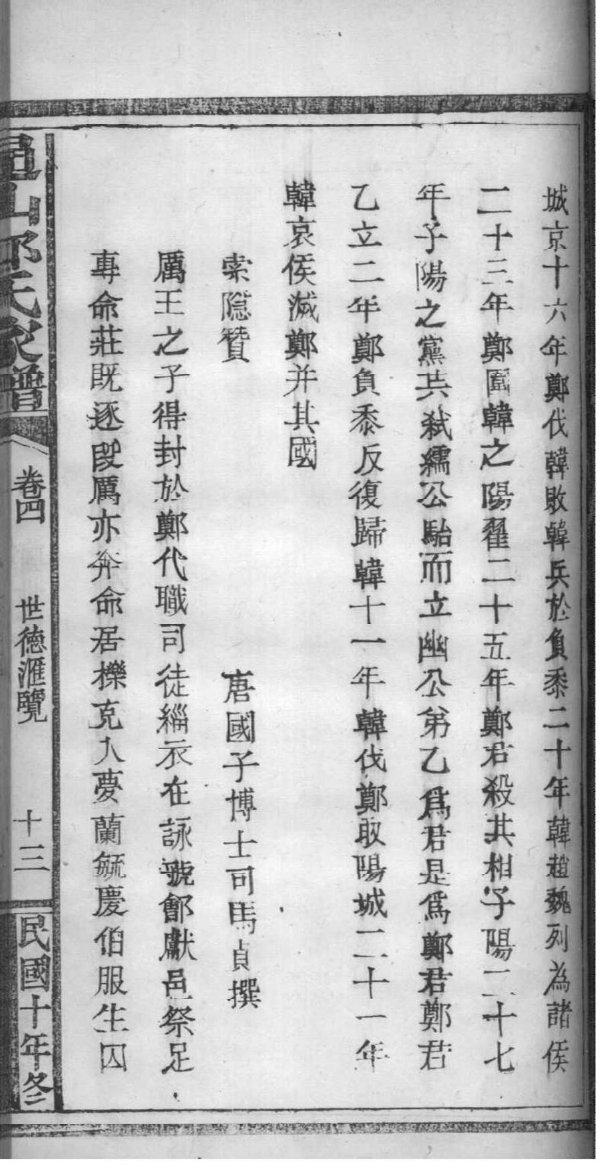 城京十六年鄭伐韓敗韓兵於負黍二十年韓趙魏列為諸侯
二十三年鄭圍韓之陽翟二十五年鄭君殺其相子陽二十七
年子陽之黨共弒繻公駘而立幽公弟乙爲君是爲鄭君鄭君
乙立二年鄭負黍反復歸韓十一年韓伐鄭取陽城二十一年
韓哀侯滅鄭并其國
索隱贊 唐國子博士司馬貞撰
厲王之子得封於鄭代職司徒緇衣在詠虢鄶獻邑祭足
專命莊既逐段厲亦奔命居櫟克入夢蘭毓慶伯服生囚
山鄭氏家譜
卷四
世德滙覽
十三
民國十年冬